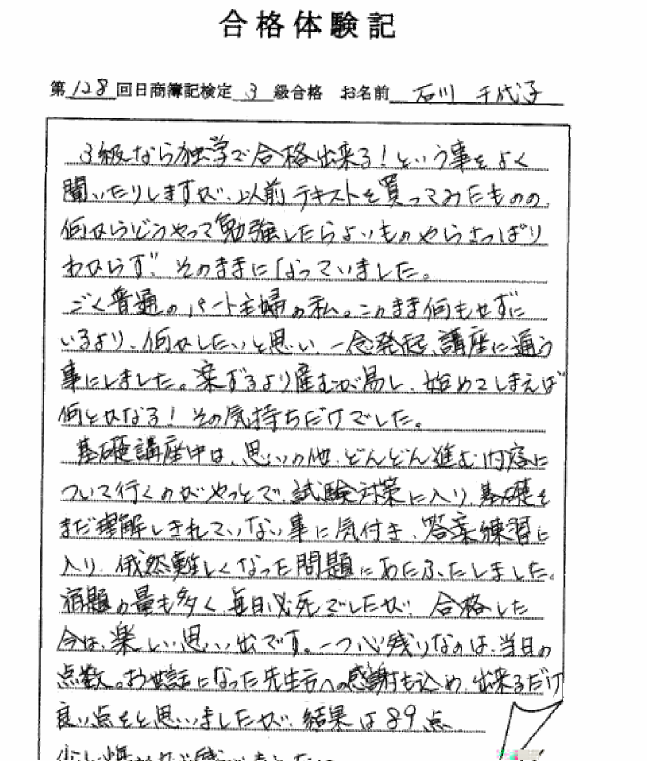 合格体験記
第128回日商簿記検定 3 級合格 お名前 石川 千代子
3級なら独学で合格出来る!という事をよく
聞いたりしますが、以前テキストを買ってみたものの、
何からどうやって勉強したらよいものやらさっぱり
わからず、そのままになっていました。
ごく普通のパート主婦の私。このまま何もせずに
いるより、何かしたいと思い、一念発起、講座に通う
事にしました。案ずるより産むが易し、始めてしまえば
何とかなる!その気持ちだけでした。
基礎講座中は、思いの他、どんどん進む内容に
ついて行くのがやっとで、試験対策に入り、基礎を
まだ理解しきれていない事に気付き、答案練習に
入り、俄然難しくなった問題にあたふたしました。
宿題の量も多く、毎日必死でしたが、合格した
今は、楽しい思い出です。一つ心残りなのは、当日の
点数。お世話になった先生方への感謝も込め、出来るだけ
良い点をと思いましたが、結果は89点。